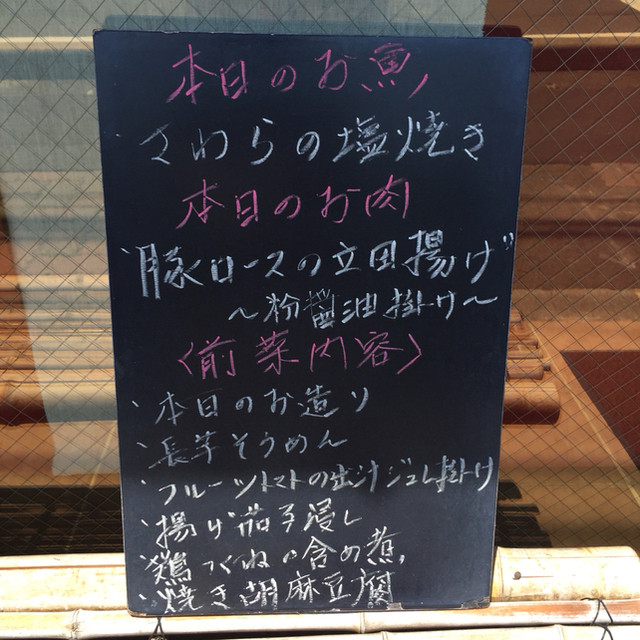 本日のお魚
さわらの塩焼き
本日のお肉
豚ロースの立田揚げ
～粉醤油掛け～
〈前菜内容〉
・本日のお造り
・長芋そうめん
・フルーツトマトの出汁ジュレ掛け
・揚げ茄子浸し
・鶏つくねの含め煮
・焼き胡麻豆腐